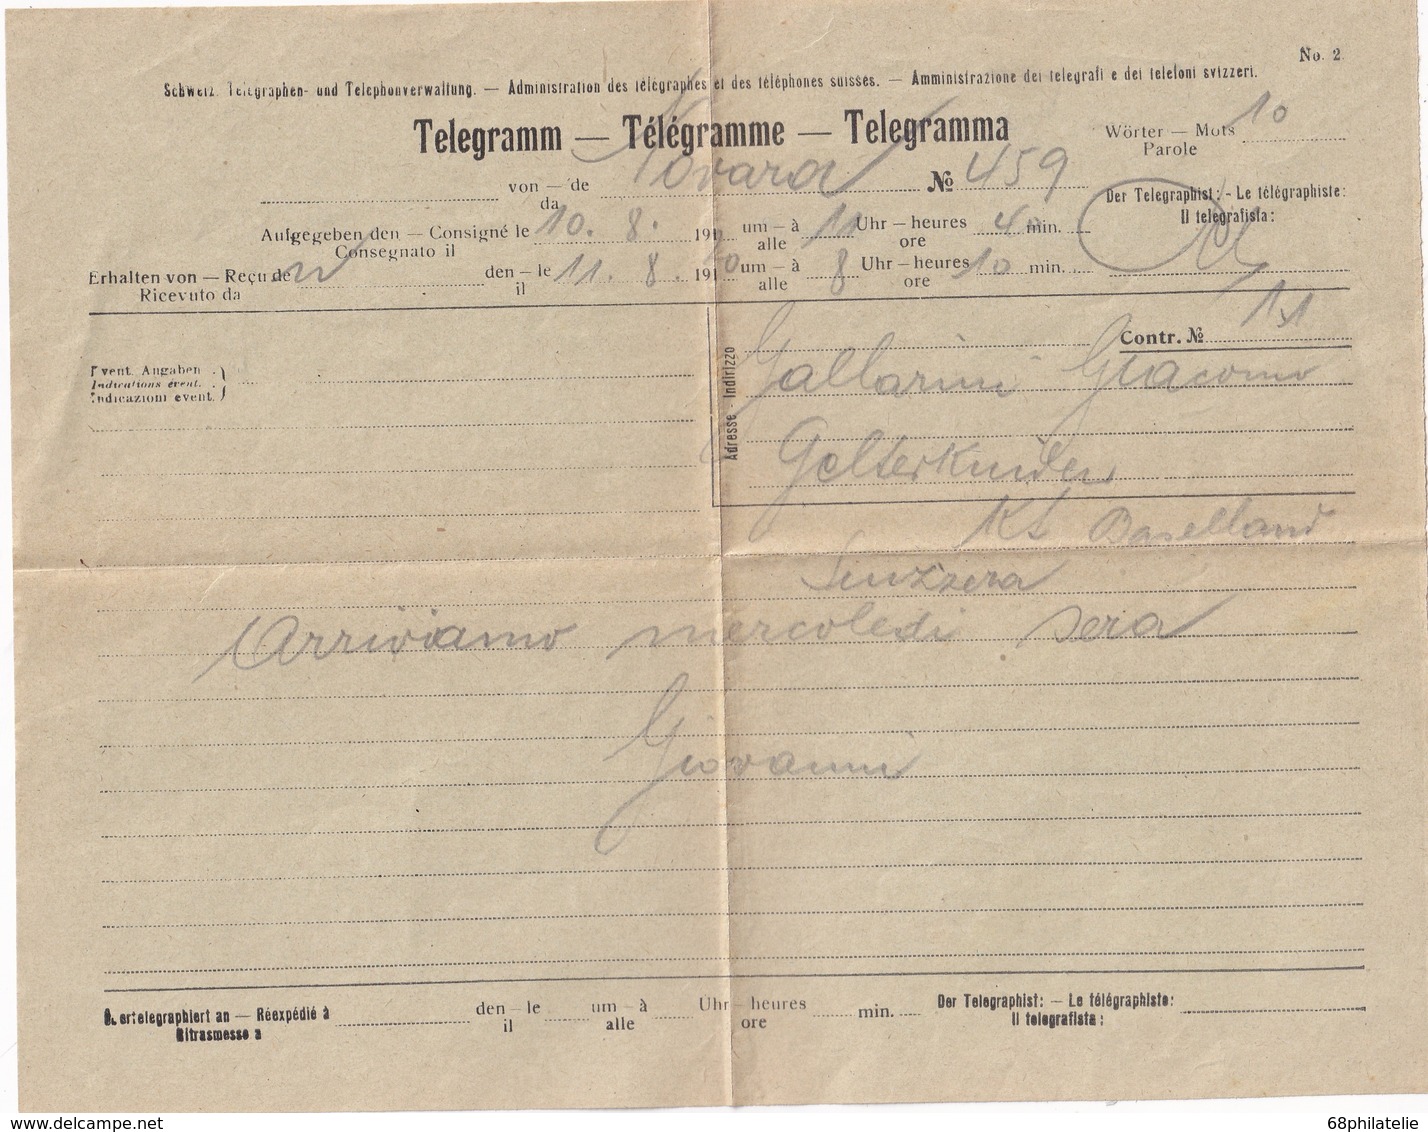 No. 2.
Schweiz. Telegraphen- und Telephonverwaltung. — Administration des télégraphes et des téléphones suisses. — Amministrazione dei telegrafi e dei telefoni svizzeri.
Telegramm — Télégramme — Telegramma
Wörter — Mots 10
Parole
von — de Novara № 459
da
Der Telegraphist: - Le télégraphiste:
Il telegrafista:
Aufgegeben den — Consigné le 10. 8. 191 um — à 11 Uhr — heures 40 min.
Consegnato il alle ore
Erhalten von — Reçu de den — le 11. 8. 191 um — à 8 Uhr — heures 10 min.
Ricevuto da il alle ore
Contr. №
Event. Angaben
Indications évent.
Indicazioni event.
Adresse - Indirizzo
Gallarini Giacomo
Gelterkinden
Kt Baselland
Svizzera
Arriviamo mercoledi sera
Giovanni
Weitertelegraphiert an — Réexpédié à den — le um — à Uhr — heures min.
Ritrasmesso a il alle ore
Der Telegraphist: — Le télégraphiste:
Il telegrafista:
68philatelie